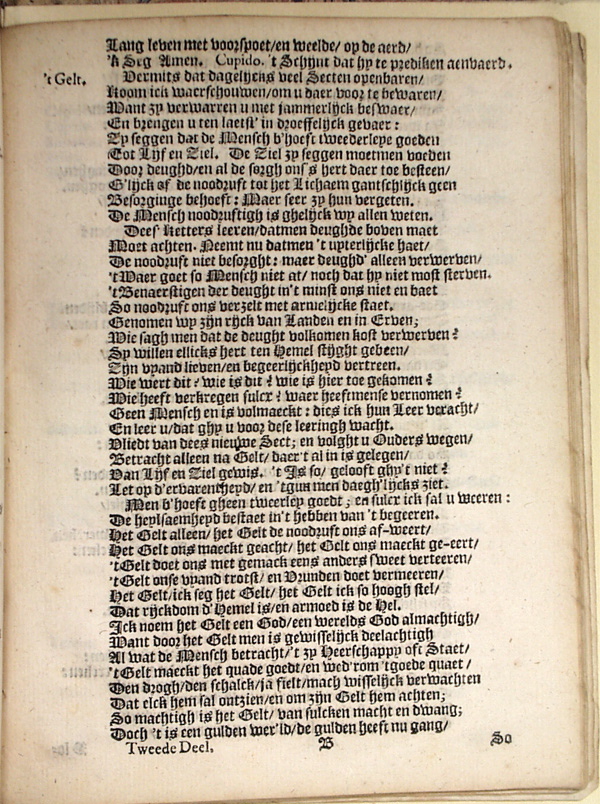 Lang leven met voorspoet/en weelde/ op de aerd/
'k Seg Amen. Cupido. 't Schijnt dat hy te prediken aenvaerd.
't Gelt. Vermits dat dagelijcks veel Secten openbaren/
Koom ick waerschouwen/om u daer voor te bewaren/
Want zy verwarren u met jammerlijck beswaer/
En brengen u ten laetst' in droeffelijck gevaer:
Zy seggen dat de Mensch b'hoeft tweederleye goeden
Tot Lijf en Ziel. De Ziel zy seggen moetmen voeden
Door deughd/en al de sorgh ons's hert daer toe besteen/
G'lijck of de noodruft tot het Lichaem gantschlijck geen
Besorginge behoeft: Maer seer zy hun vergeten.
De Mensch noodruftigh is ghelijck wy allen weten.
Dees' Ketters leeren/datmen deughde boven maet
Moet achten. Neemt nu datmen 't uyterlijcke haet/
De noodruft niet besorght: maer deughd' alleen verwerven/
't Waer goet so Mensch niet at/ noch dat hy niet most sterven.
't Benaerstigen der deught in't minst ons niet en baet
So noodruft ons verzelt met armelijcke staet.
Genomen wy zijn rijck van Landen en in Erven;
Wie sagh men dat de deught volkomen kost verwerven?
Sy willen ellicks hert ten Hemel stijght gebeen/
Zijn vyand lieven/en begeerlijckheyd vertreen.
Wie wert dit? wie is dit? wie is hier toe gekomen?
Wie heeft verkregen sulcx? waer heeftmense vernomen?
Geen Mensch en is volmaeckt: dies ick hun Leer veracht/
En leer u/dat ghy u voor dese leeringh wacht.
Vliedt van dees nieuwe Sect; en volght u Ouders wegen/
Betracht alleen na Gelt/ daer't al in is gelegen/
Van Lijf en Ziel gewis. 't Is so/ gelooft ghy't niet?
Let op d'ervarentheyd/ en 'tgun men daegh'lijcks ziet.
Men b'hoeft gheen tweerley goedt; en sulcx ick sal u weeren:
De heylsaemheyd bestaet in't hebben van 't begeeren.
Het Gelt alleen/ het Gelt de noodruft ons af-weert/
Het Gelt ons maeckt geacht/ het Gelt ons maeckt ge-eert/
't Gelt doet ons met gemack eens anders sweet verteeren/
't Gelt onse vyand trotst/ en Vrunden doet vermeeren/
Het Gelt/ick seg het Gelt/ het Gelt ick so hoogh stel/
Dat rijckdom d'Hemel is/en armoed is de Hel.
Ick noem het Gelt een God/een werelds God almachtigh/
Want door het Gelt men is gewisselijck deelachtigh
Al wat de Mensch betracht/'t zy Heerschappy oft Staet/
't Gelt maeckt het quade goedt/en wed'rom 'tgoede quaet/
Den drogh/den schalck/ja fielt/mach wisselijck verwachten
Dat elck hem sal ontzien/en om zijn Gelt hem achten;
So machtigh is het Gelt/ van sulcken macht en dwang;
Doch 't is een gulden wer'ld/de gulden heeft nu gang/
Tweede Deel. B So